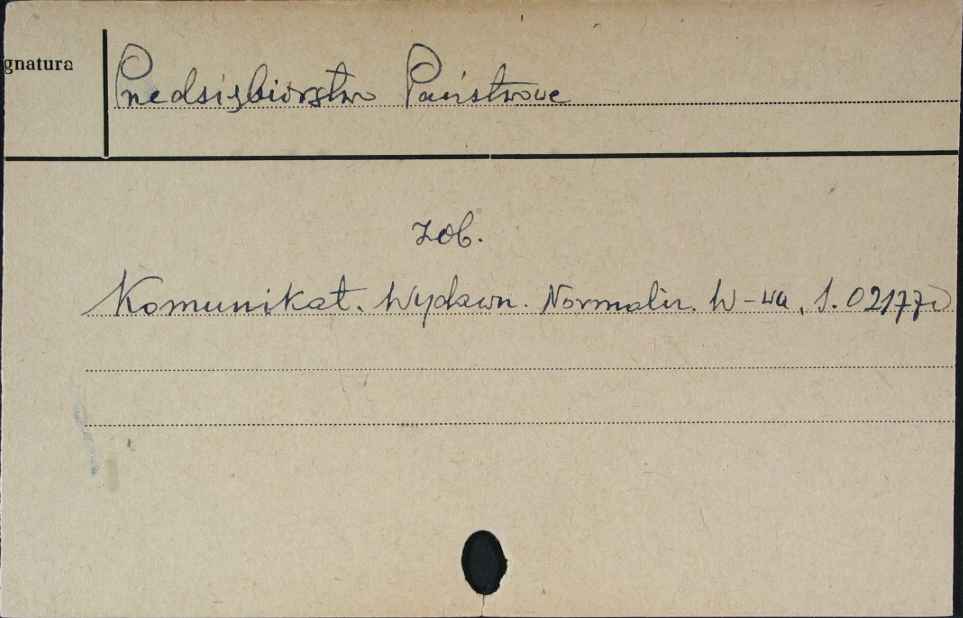 gnatura
Przedsiębiorstwo Państwowe
zob.
Komunikat. Wydawn. Normaliz. W-wa, S. 02177